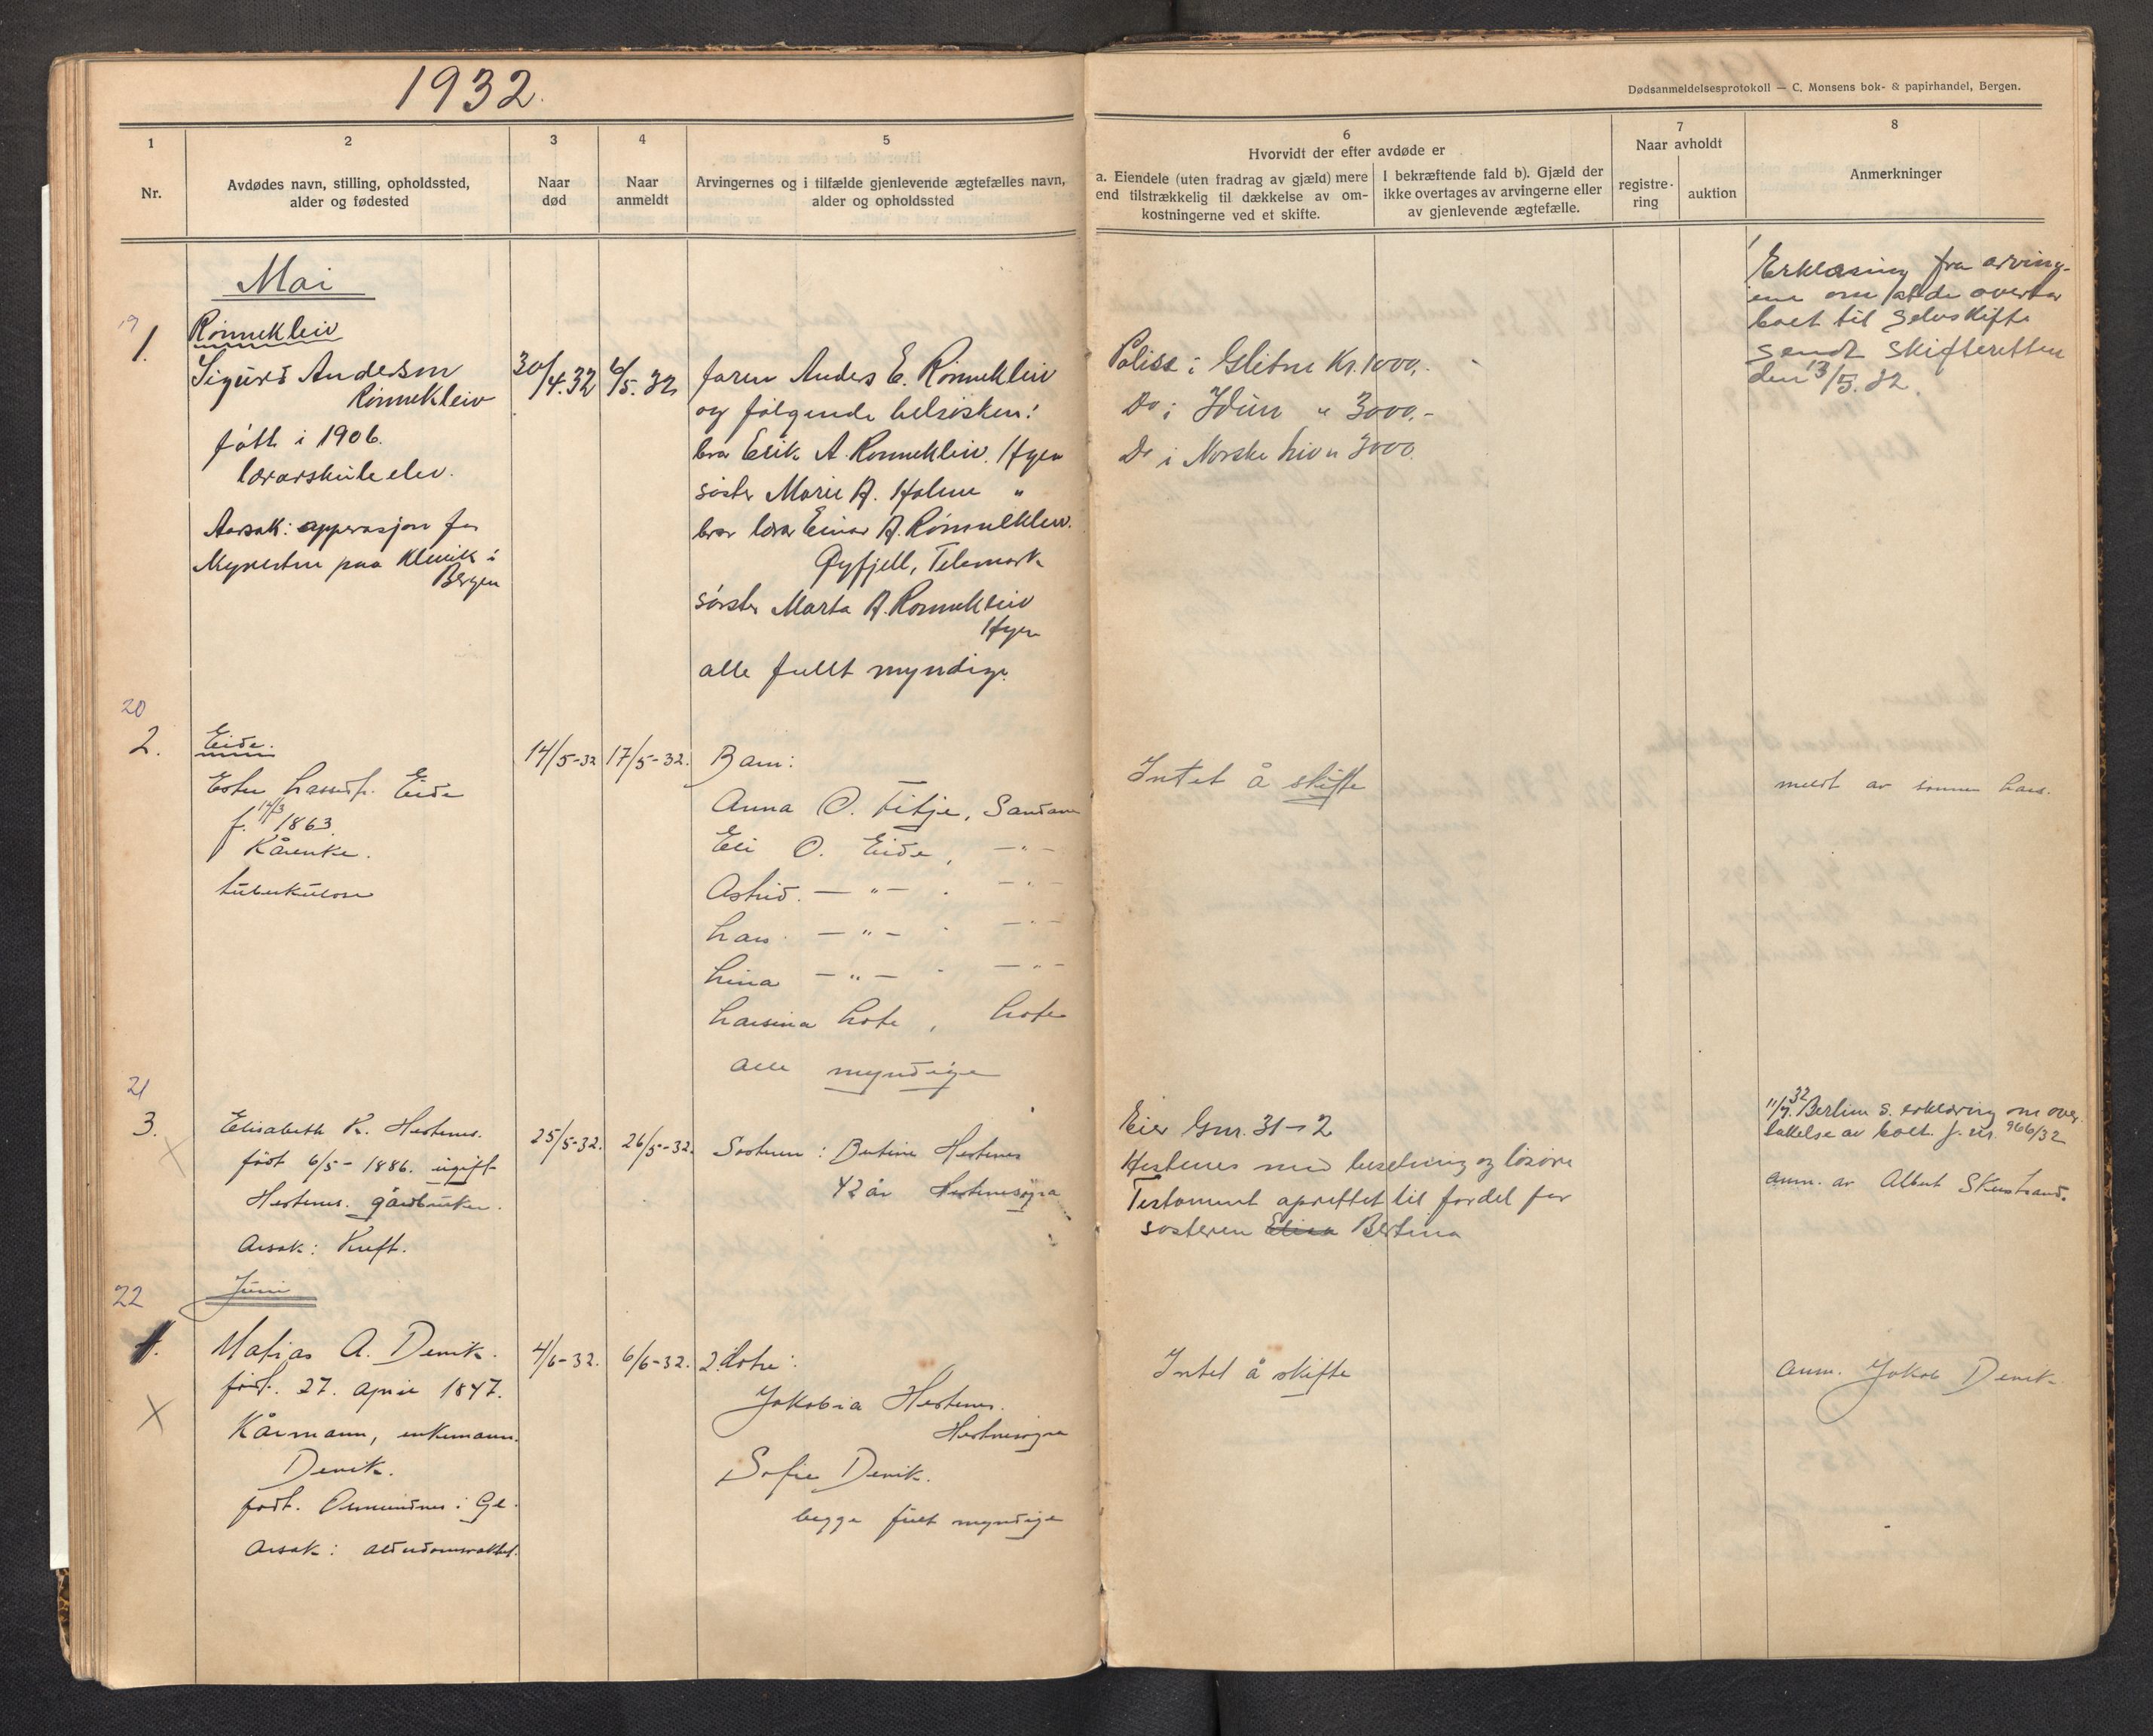 1932.
Dødsanmeldelsesprotokoll — C. Monsens bok- & papirhandel, Bergen.
1
Nr.
2
Avdødes navn, stilling, opholdssted,
alder og fødested
3
Naar
død
4
Naar
anmeldt
5
Arvingernes og i tilfælde gjenlevende ægtefælles navn,
alder og opholdssted
6
Hvorvidt der efter avdøde er
a. Eiendele (uten fradrag av gjæld) mere
end tilstrækkelig til dækkelse av om-
kostningerne ved et skifte.
I bekræftende fald b). Gjæld der
ikke overtages av arvingerne eller
av gjenlevende ægtefælle.
7
Naar avholdt
registre-
ring
auktion
8
Anmerkninger
Mai
19
1.
Rønnekleiv
Sigurd Anderson
Rønnekleiv
født i 1906.
lærarskule elev.
Aarsak: opperasjon for
paa Klinik i
Bergen
30/4.32
6/5.32
faren Andes E. Rønnekleiv
og følgende helsøsken:
bror Erik A. Rønnekleiv. Hyen
søster Marie A. Holme "
bror lærar Einar A. Rønnekleiv.
Øyfjell, Telemark
søster Marta A. Rønnekleiv
Hyen
alle fullt myndige.
Polise i Glitne Kr. 1000,-
Do i Idun " 3000,-
Do i Norske Liv " 3000.
Erklæring fra arving-
ene om at de overtar
boet til selvskifte
sendt Skifteretten
den 13/5.32.
20
2.
Eide.
Ester Eide
f. 14/3 1863.
Kårenke.
tuberkulose
14/5-32
17/5-32.
Barn:
Anna O. Fitje, Sandane
Eli O. Eide, — " —
Astrid. — " — . — " —
Lars. — " — . — " —
Lina — " — . — " —
Larsina Lote, Lote
alle myndige
Intet å skifte
meldt av sønnen Lars.
21
3.
Elisabeth K. Hestenes.
født 6/5 - 1886. ugift
Hestenes. gårdbruker.
Årsak: Kreft.
25/5-32.
26/5-32.
Søsteren: Bertine Hestenes
42 år Hestenesøyra
Eier Gnr. 31-2
Hestenes med besetning og løsøre
Testament oprettet til fordel for
søsteren Elisa Bertina
11/7.32 Bertine s. erklæring om over-
takelse av boet. j. nr. 966/32
anm. av Albert Skrustrand.
22
Juni
1.
Matias A. Devik.
født. 27. april 1847.
Kårmann, enkemann.
Devik.
født. i Gl.
Årsak: alderdomssvakhet.
4/6-32.
6/6-32.
2 døtre:
Jakobia Hestenes.
Hestenesøyra
Sofie Devik.
begge fult myndige
Intet å skifte
anm. Jakob Devik